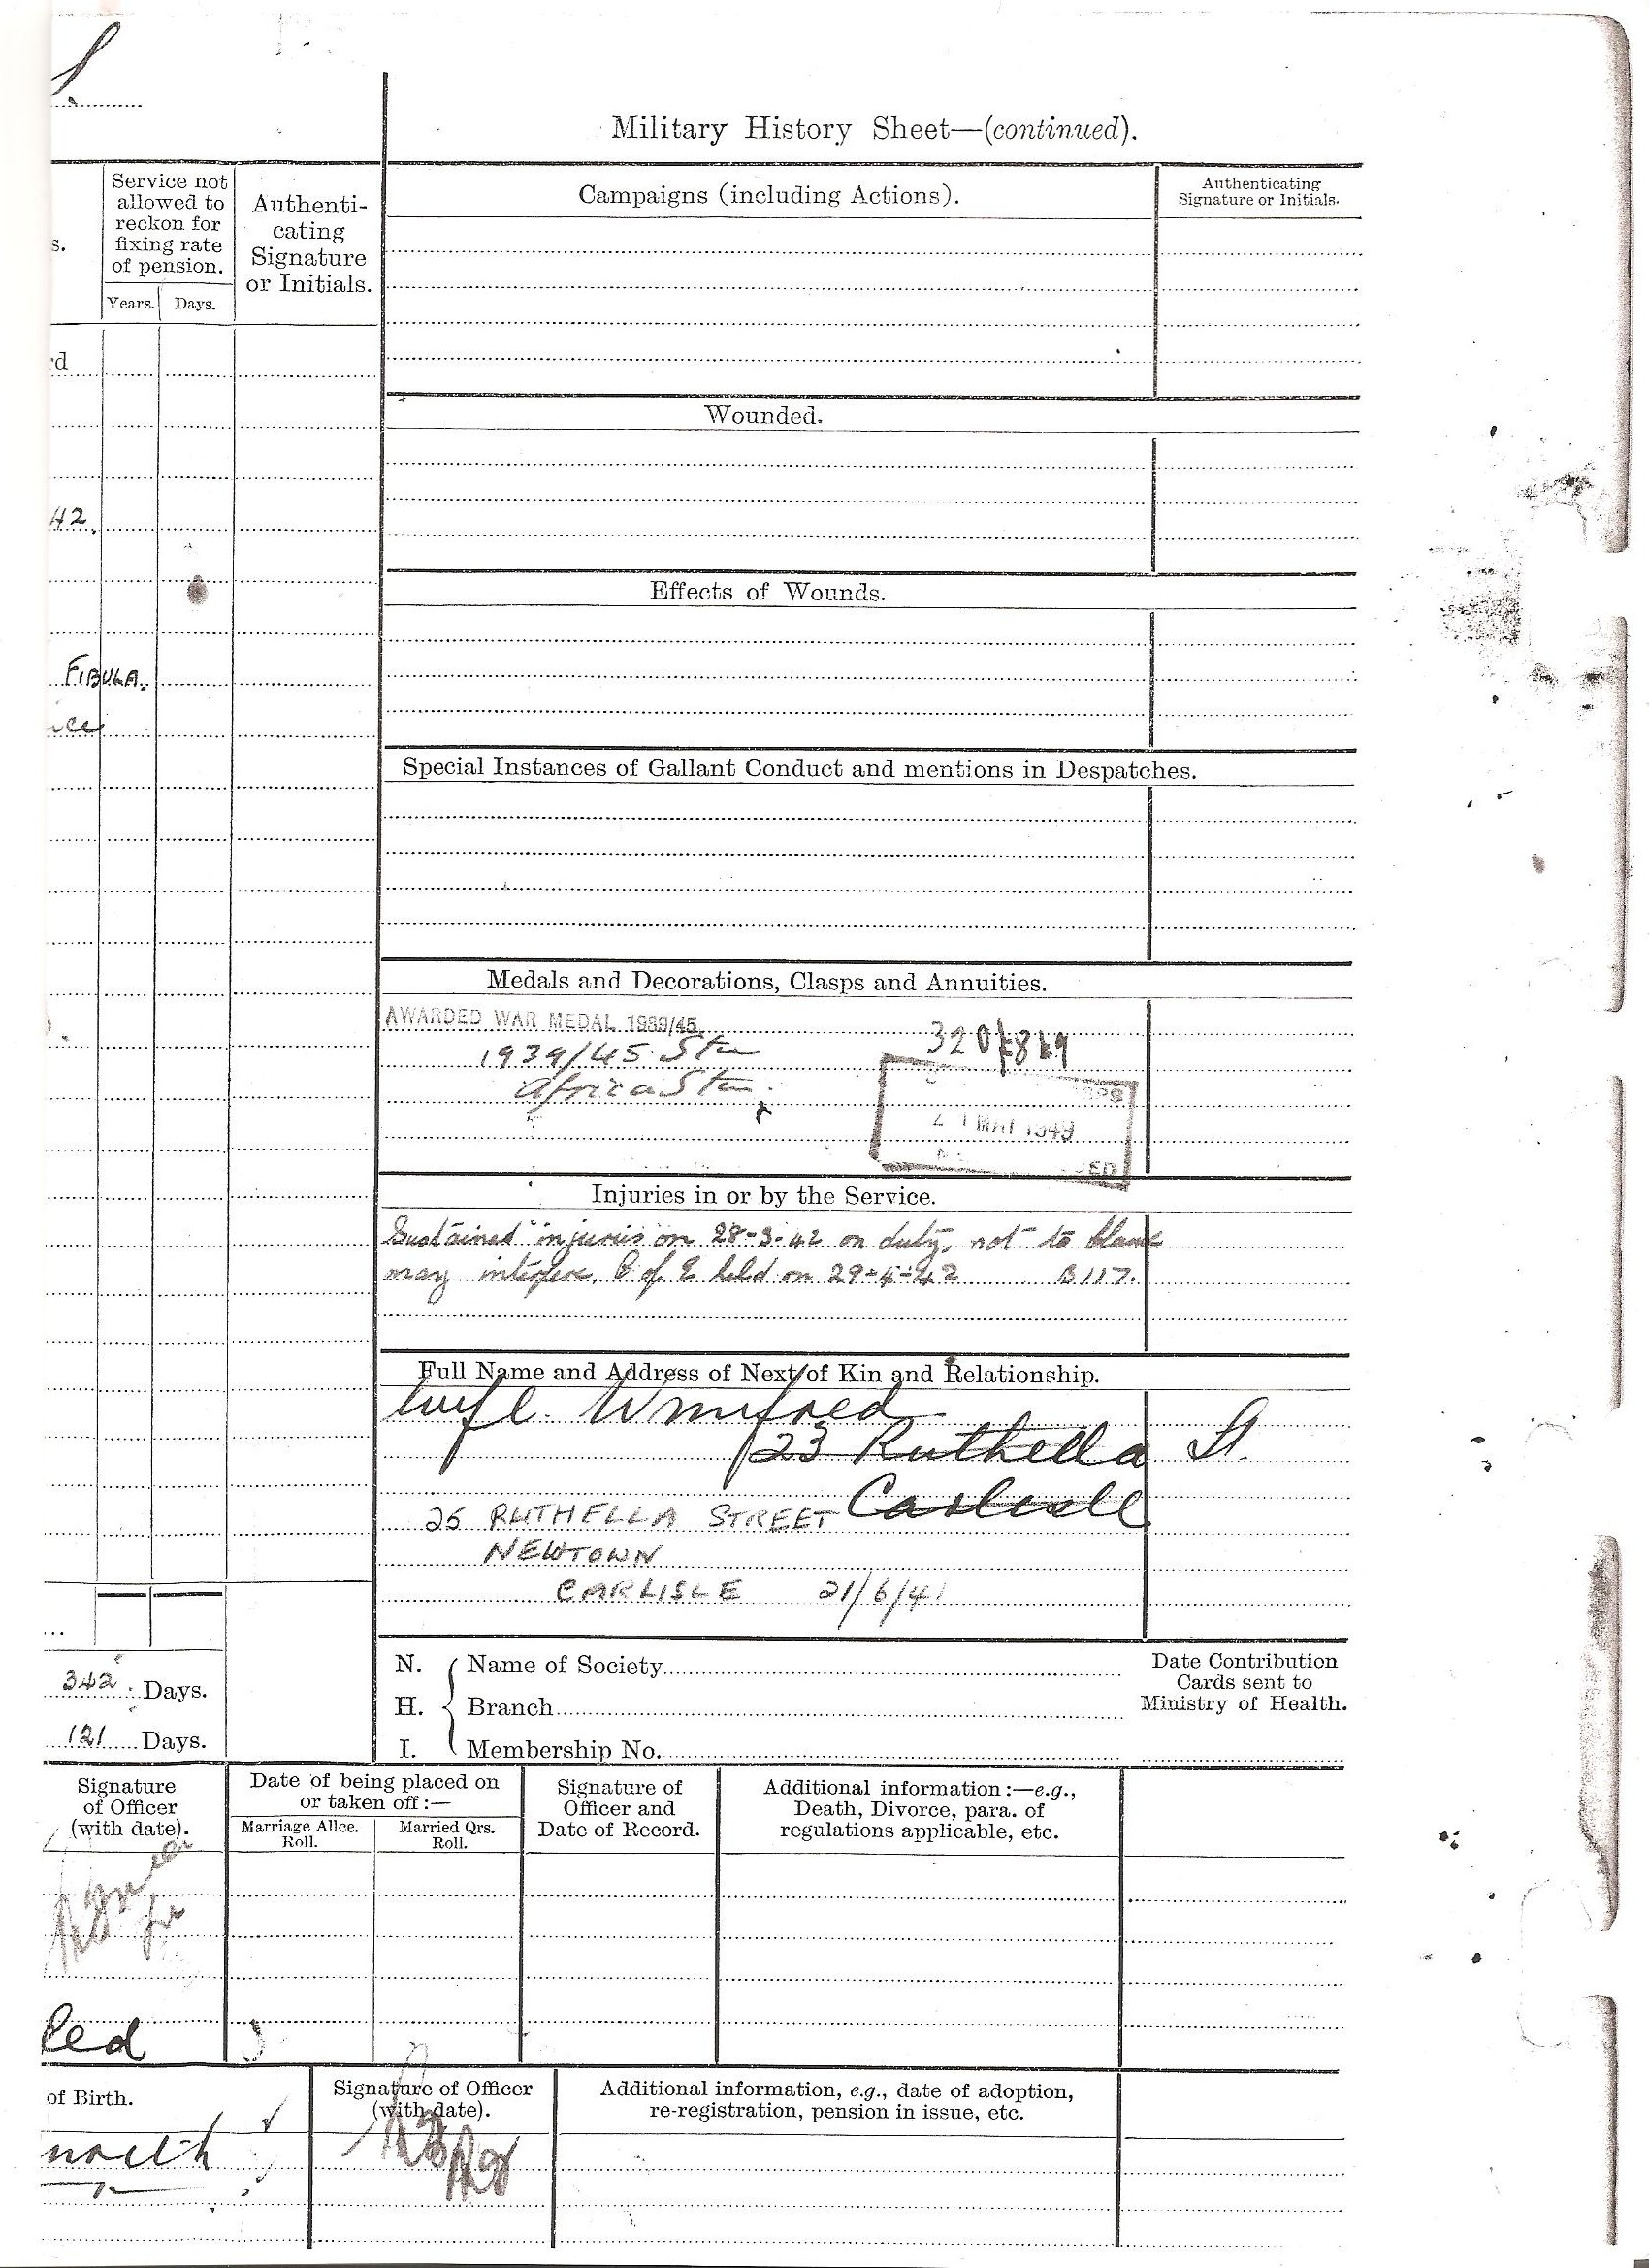 Military History Sheet—(continued).
s.
Service not
allowed to
reckon for
fixing rate
of pension.
Years. Days.
Authenti-
cating
Signature
or Initials.
Campaigns (including Actions).
Authenticating
Signature or Initials.
rd
Wounded.
42.
Effects of Wounds.
FIBULA.
Special Instances of Gallant Conduct and mentions in Despatches.
Medals and Decorations, Clasps and Annuities.
AWARDED WAR MEDAL 1939/45
1939/45 Star
Africa Star.
Injuries in or by the Service.
Sustained injuries on 28-3-42 on duty, not to blame
may interfere. C of E held on 29-4-42 B117.
Full Name and Address of Next of Kin and Relationship.
Wife. Winifred
23 Ruthella St.
Carlisle
25 RUTHELLA STREET
NEWTOWN
CARLISLE 21/6/41
342 Days.
121 Days.
N. H. I.
Name of Society
Branch
Membership No.
Date Contribution
Cards sent to
Ministry of Health.
Signature
of Officer
(with date).
Date of being placed on
or taken off:—
Marriage Allce.
Roll.
Married Qrs.
Roll.
Signature of
Officer and
Date of Record.
Additional information:—e.g.,
Death, Divorce, para. of
regulations applicable, etc.
led
of Birth.
Signature of Officer
(with date).
Additional information, e.g., date of adoption,
re-registration, pension in issue, etc.